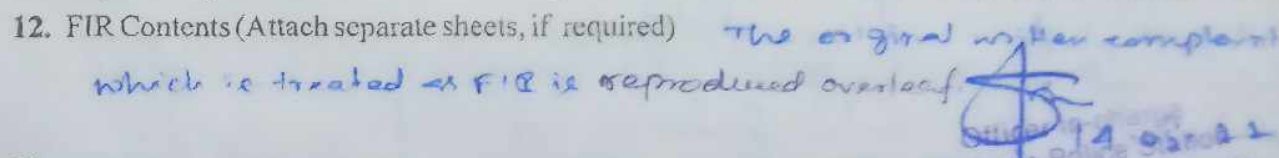 12. FIR Contents (Attach separate sheets, if required) The original written complaint
which is treated as FIR is reproduced overleaf.